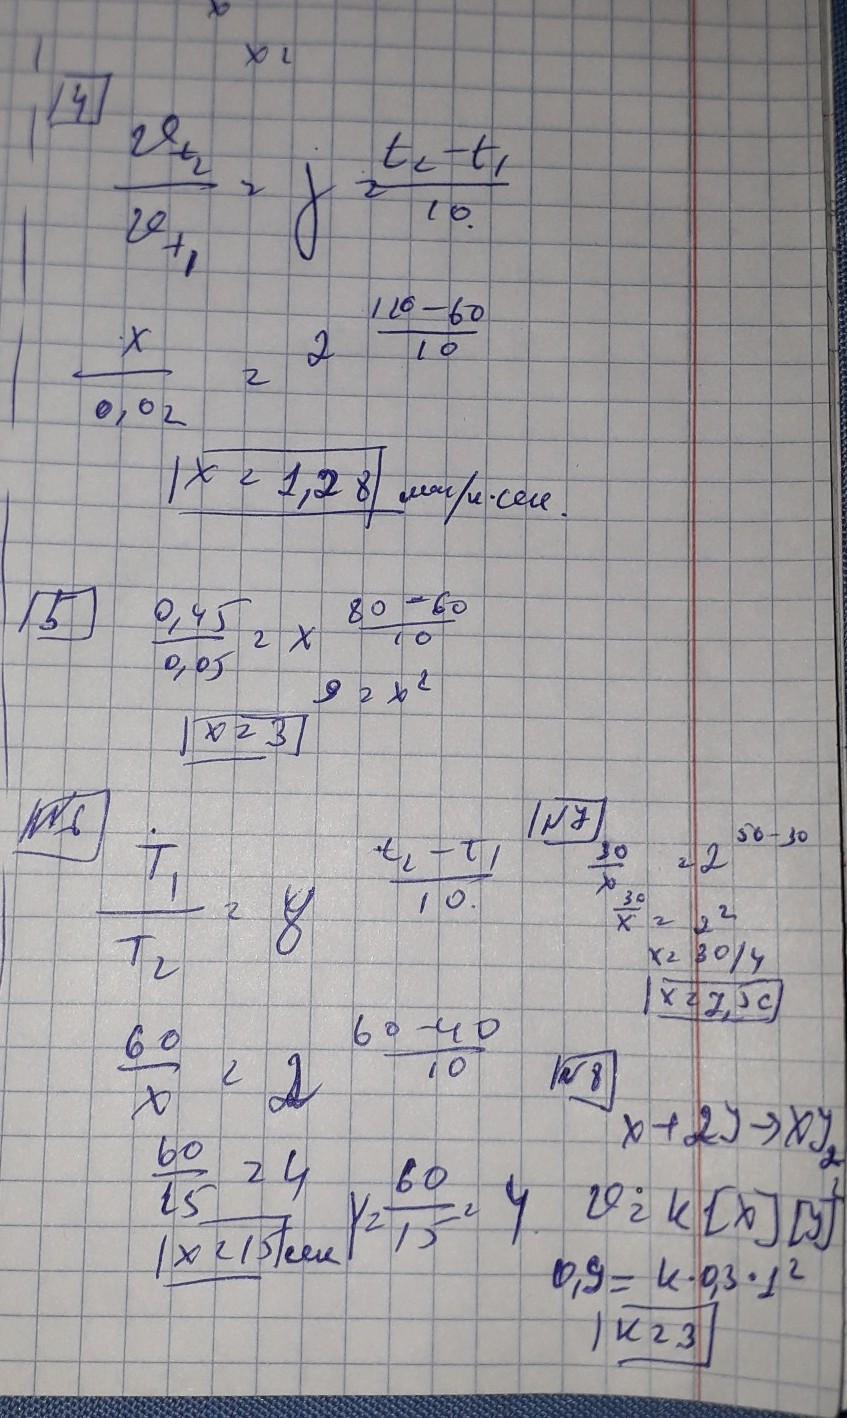 x =
4
υt₂ / υt₁ = γ = (t₂ - t₁) / 10.
x / 0,02 = 2 (120 - 60) / 10
x = 1,28 моль/л·сек.
5
0,45 / 0,05 = x (80 - 60) / 10
9 = x²
x = 3
№6
T₁ / T₂ = γ (t₂ - t₁) / 10.
60 / x = 2 (60 - 40) / 10
60 / 15 = 4
x = 15 сек
γ = 60 / 15 = 4
№7
30 / x = 2 50 - 30
30 / x = 2²
x = 30/4
x = 7,5c
№8
x + 2y → xy₂
υ = k [x] [y]²
0,9 = k · 0,3 · 1²
k = 3